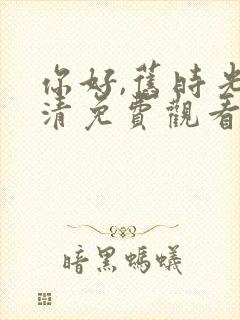 你好,舊時光
清免費觀看
暗黑螞蟻